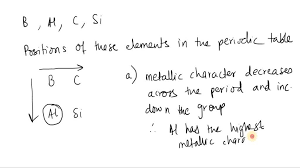 B, Al, C, Si
Positions of these elements in the periodic table
B C
Al Si
a) metallic character decreases
across the period and inc
down the group
∴ Al has the highest
metallic chara